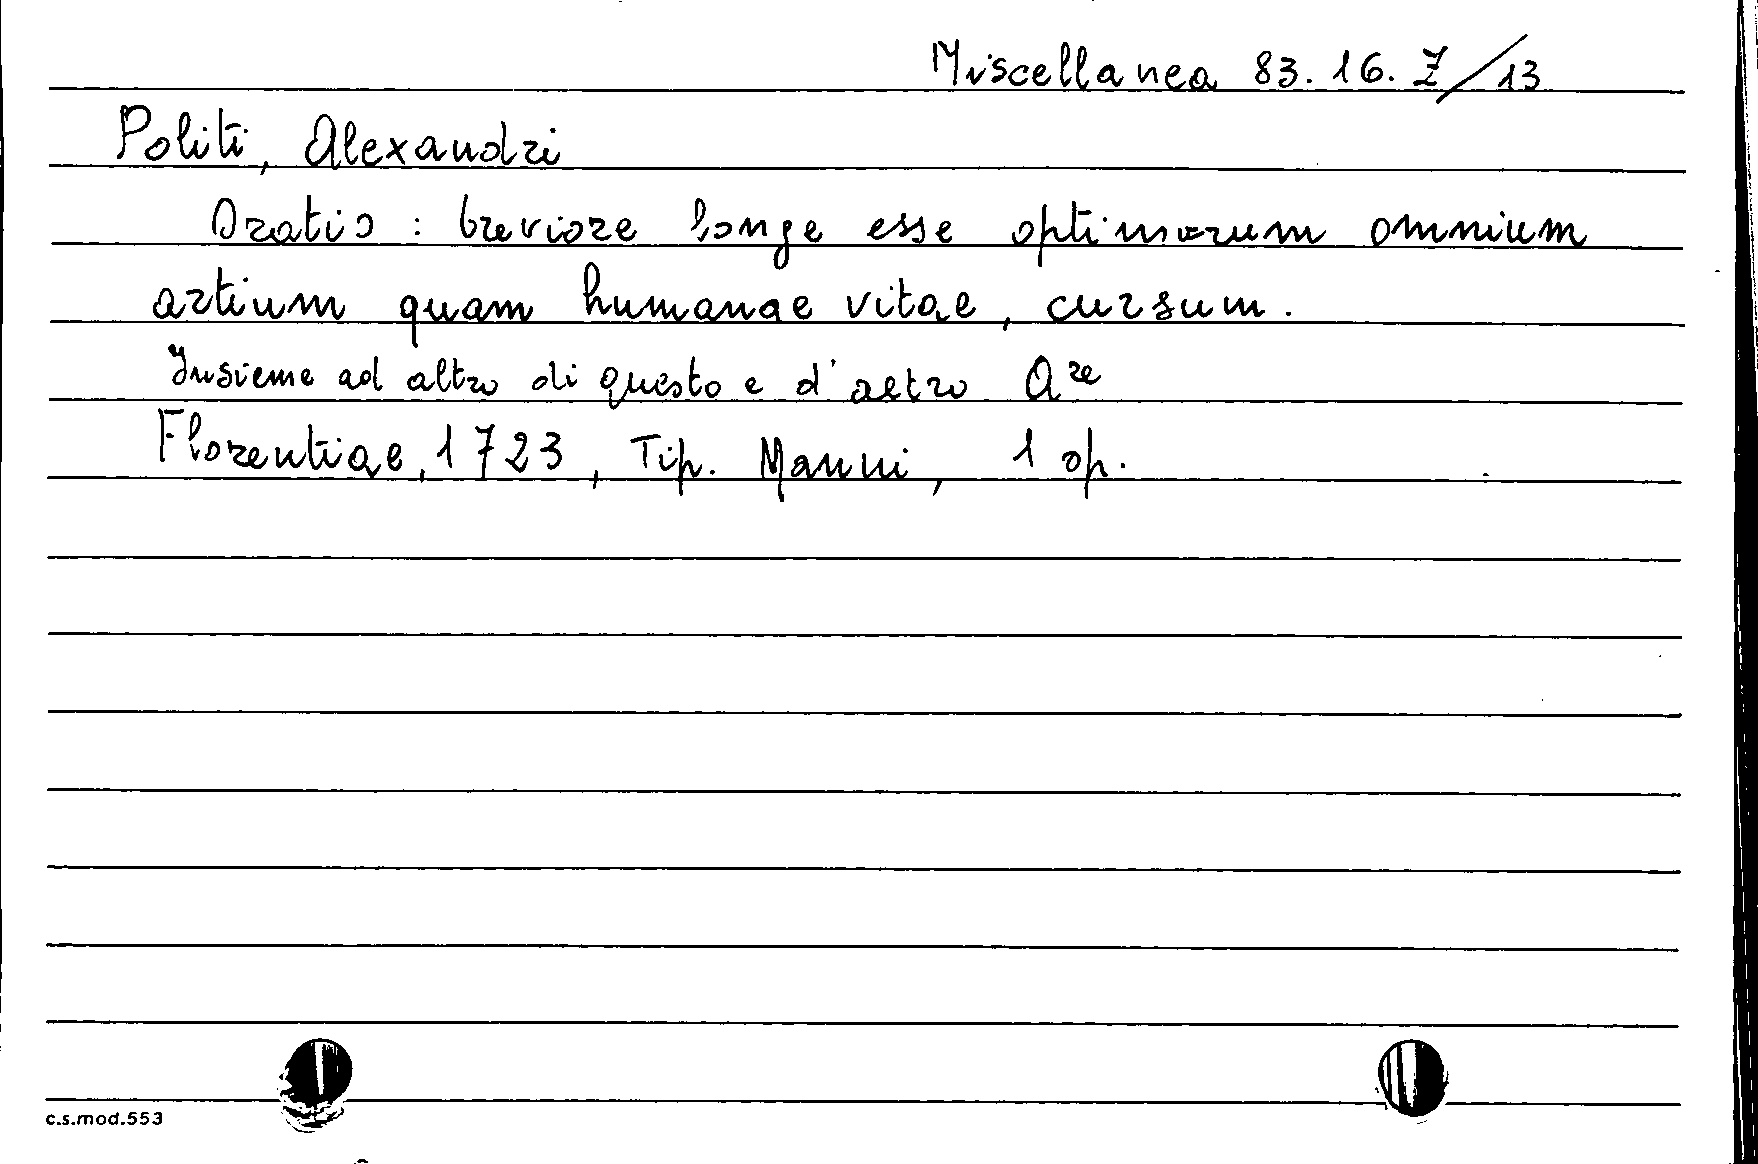 Miscellanea 83.16.Z/13
Politi, Alexandri
Oratio : breviore longe esse optimorum omnium
artium quam humanae vitae, cursum.
Insieme ad altro di questo e d'altro Are
Florentiae, 1723, Tip. Manni, 1 op.
c.s.mod.553